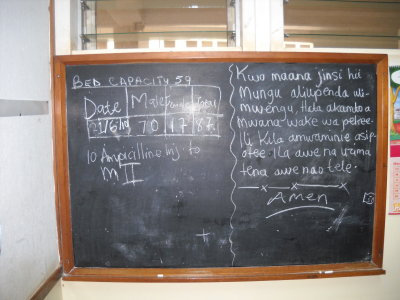 BED CAPACITY 59
Date Male Female Total
21/6/11 70 17 87
10 Ampicilline inj to
M II
Kwa maana jinsi hii
Mungu aliupenda uli-
mwengu, Hata akamtoa
Mwana-wake wa pekee.
Ili kila amwaminie asip-
otee. Ila awe na uzima
tena awe nao tele.
Amen